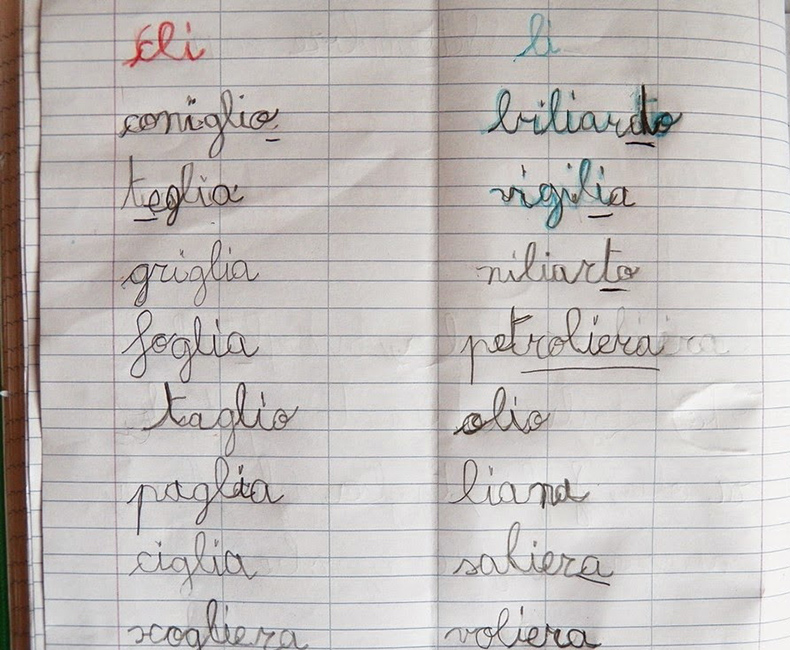 gli
coniglio
teglia
griglia
foglia
taglio
paglia
ciglia
scogliera
li
biliardo
vigilia
niliarto
petroliera
olio
liana
saliera
voliera